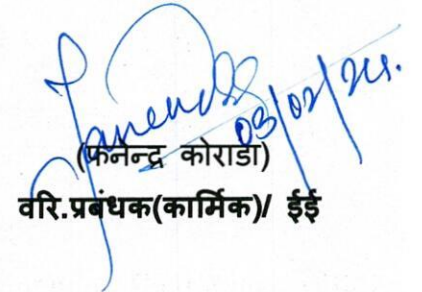 03/02/24.
(फनेन्द्र कोराडा)
वरि.प्रबंधक(कार्मिक)/ ईई